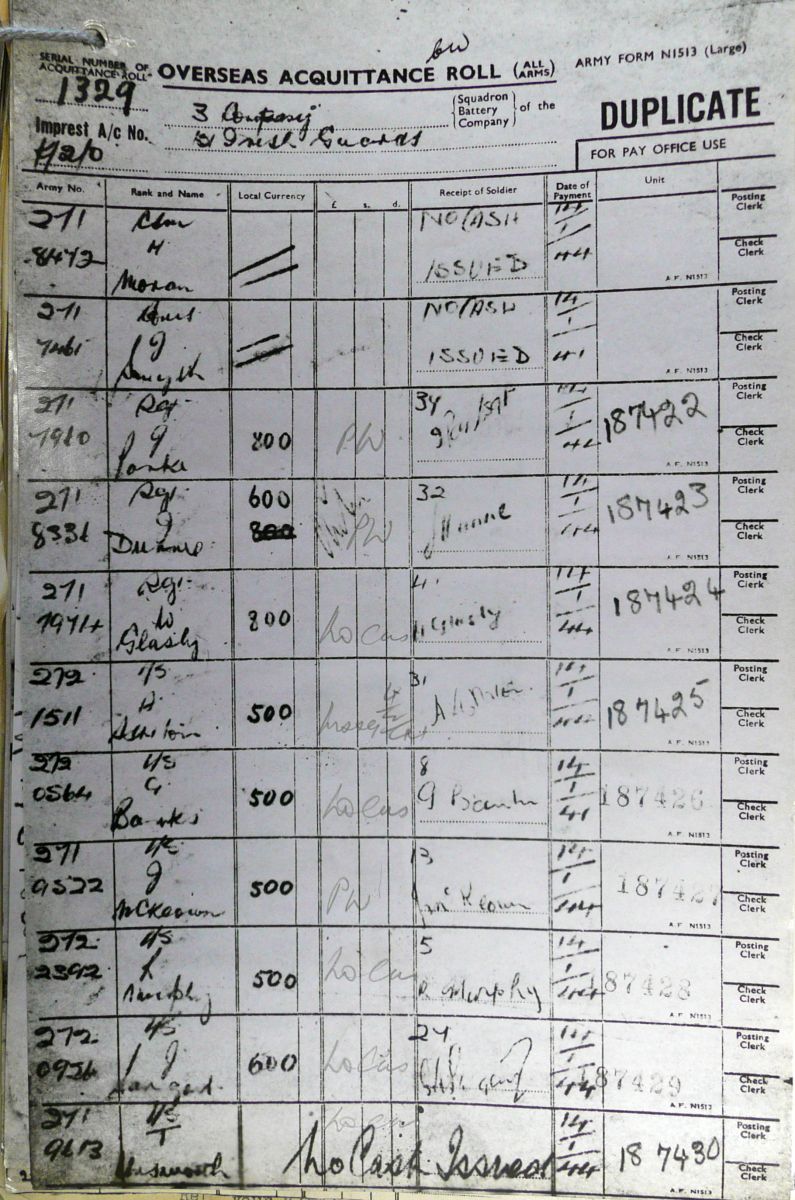 6W
SERIAL NUMBER OF
ACQUITTANCE ROLL
1329
OVERSEAS ACQUITTANCE ROLL (ALL ARMS)
ARMY FORM N1513 (Large)
Imprest A/c No.
3 Company
Irish Guards
(Squadron
Battery
Company) of the
DUPLICATE
FOR PAY OFFICE USE
Army No. Rank and Name Local Currency £ s. d. Receipt of Soldier Date of Payment Unit Posting Clerk
271 H NO CASH 14
8472 Moran ISSUED 1 44 Check Clerk
A.F. N1513
271 J NO CASH 14 Posting Clerk
Smyth ISSUED 1 Check Clerk
A.F. N1513
271 Sgt J 34 14 187422 Posting Clerk
800 PW 1 44 Check Clerk
A.F. N1513
271 Sgt J 600 32 14 187423 Posting Clerk
8331 Dunne 800 PW 1 44 Check Clerk
A.F. N1513
271 Sgt W 41 14 187424 Posting Clerk
Glasby 800 No cas 1 44 Check Clerk
A.F. N1513
272 L/S A 31 14 187425 Posting Clerk
1511 500 1 44 Check Clerk
A.F. N1513
272 L/S G 8 14 187426 Posting Clerk
0564 Banks 500 No cas G Banks 1 Check Clerk
A.F. N1513
271 L/S J 13 14 187427 Posting Clerk
9522 McKeown 500 PW J McKeown 1 44 Check Clerk
A.F. N1513
272 L/S 5 14 187428 Posting Clerk
2392 Murphy 500 No cas R Murphy 1 44 Check Clerk
A.F. N1513
272 L/S J 24 14 187429 Posting Clerk
600 No cas 1 44 Check Clerk
A.F. N1513
271 L/S T No cas 14 187430 Posting Clerk
9613 Unsworth No Cash Issued 1 44 Check Clerk